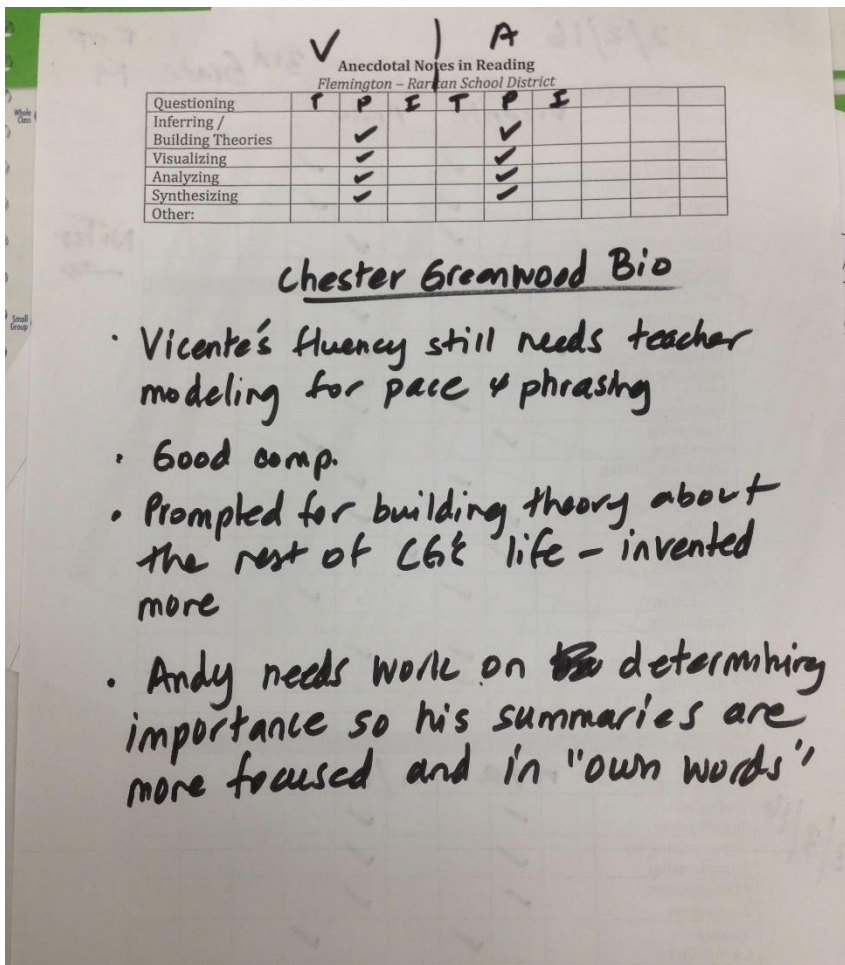 V | A
Anecdotal Notes in Reading
Flemington – Raritan School District
Questioning T P I T P I
Inferring /
Building Theories ✓ ✓
Visualizing ✓ ✓
Analyzing ✓ ✓
Synthesizing ✓ ✓
Other:
Whole
Class
Chester Greenwood Bio
Small
Group
· Vicente's fluency still needs teacher
modeling for pace & phrasing
· Good comp.
· Prompted for building theory about
the rest of CG's life – invented
more
· Andy needs work on determining
importance so his summaries are
more focused and in "own words"